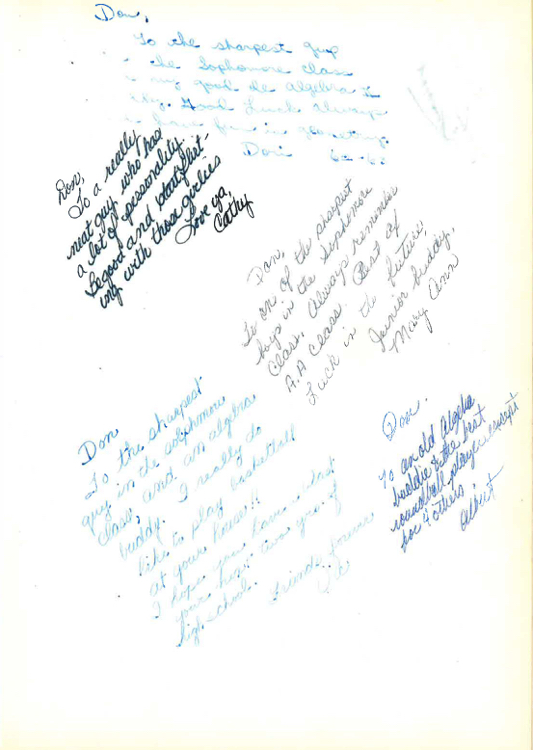 Don,
To the sharpest guy
the Sophomore class
my good ole Algebra II
Good Luck always
have fun in
Dori 62-63
Don,
To a really
neat guy who has
a lot of personality.
Be good and start flirt-
ing with those girlies
Love ya,
Cathy
Don,
To one of the sharpest
boys in the Sophomore
Class. Always remember
A.A class. Best of
Luck in the future,
Junior buddy,
Mary Ann
Don
To the sharpest
guy in the sophomore
class, and an algebra
buddy. I really do
like to play basketball
at your house!!
I hope you have a blast
your next two yrs. of
high school.
Friends forever
Don.
To an old Algebra
buddie & the best
roundball player except
for 4 others.
Albert